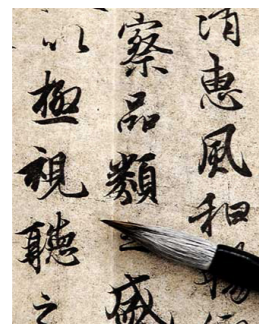 清惠風和暢
察品類之盛
以極視聽之